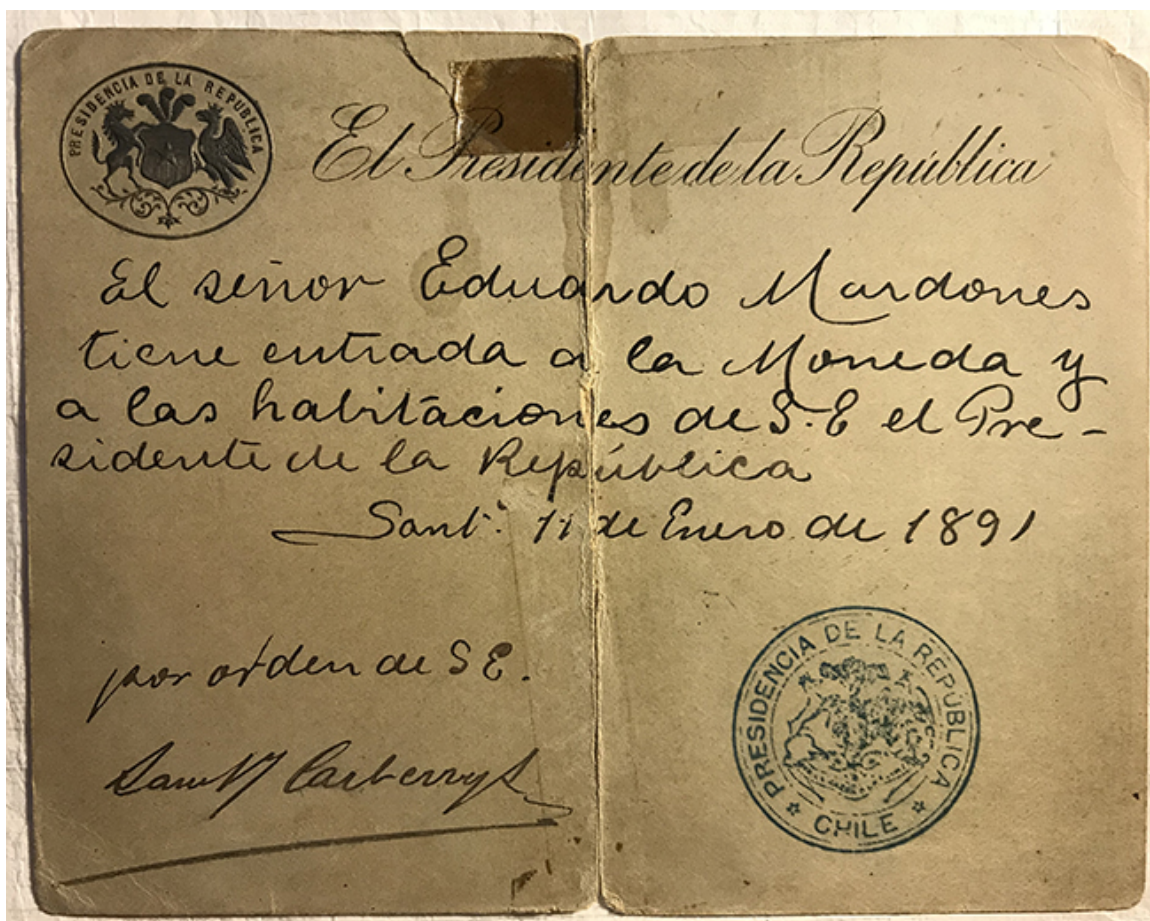 PRESIDENCIA DE LA REPUBLICA
El Presidente de la República
El señor Eduardo Mardones
tiene entrada a la Moneda y
a las habitaciones de S.E el Pre-
sidente de la República
Sant. 11 de Enero de 1891
por orden de S E.
PRESIDENCIA DE LA REPÚBLICA
CHILE